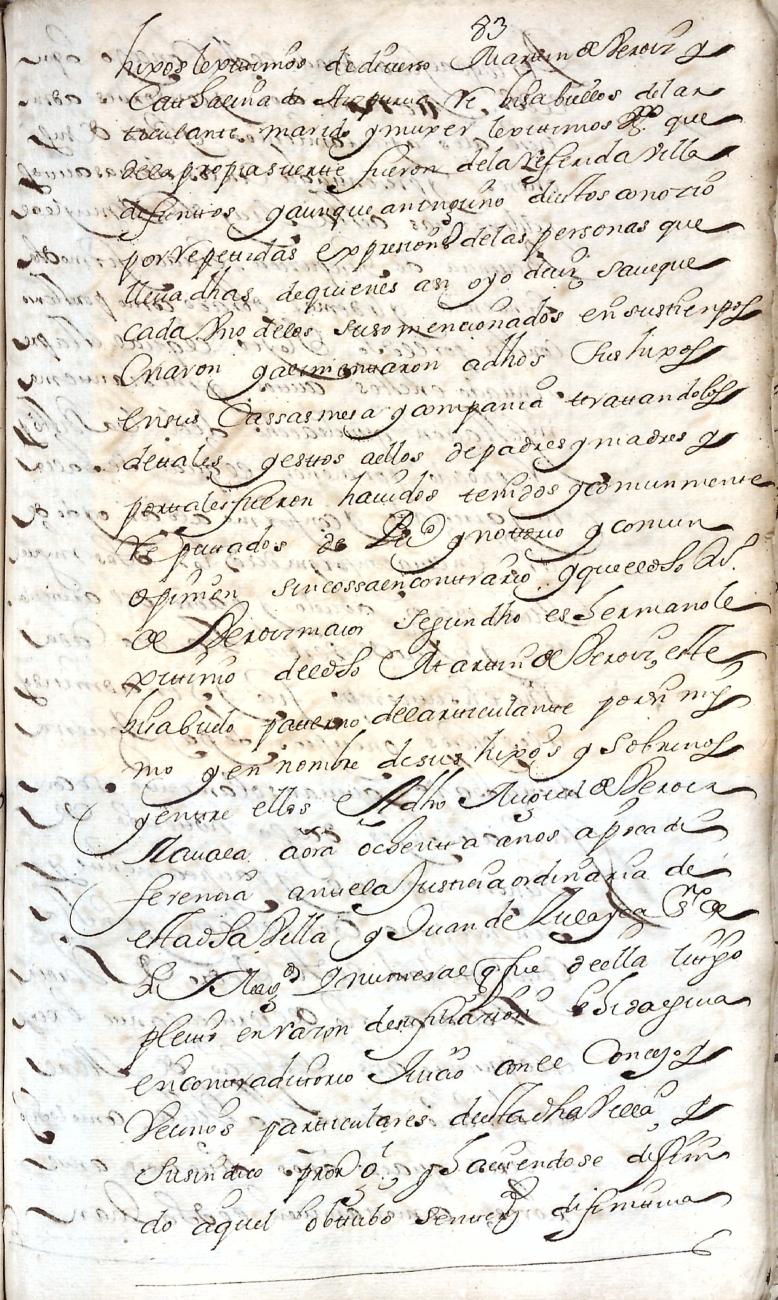 83
hixos lexitimos de dichos Martin de Beroiz y
Cathalina de Re bisabuelos del ar
ticulante marido y muxer lexitimos que
de la propia suertte fueron de la referida Villa
difuntos y aunque antinguno de estos conozio
por repetidas expresiones de las personas que
lleva dhas de quienes asi oyo decir save que
cada Uno de los suso mencionados en sus tienpos
Criaron y alimentaron a dhos sus hixos
en sus Cassas mesa y compania trattandolos
de tales y estos a ellos de padres y madres y
por tales fueron havidos tenidos y comunmente
Reputados de y nottorio y comun
opinion sin cossa en contrario y que el dho
de Beroiz maior segun dho es hermano le
xitimo del dho Martin de Beroiz este
bisabuelo patterno del articulante por si mis
mo y en nombre de sus hixos y sobrinos
y entre ellos el dho Miguel de Beroiz
avra ochentta años a poca di
ferencia antte la Justicia ordinaria de
esta dha Villa y Juan de de
su Magd y numeral que fue de ella
pleito en razon de su filiazion e hidalguia
en contradittorio Juicio con el Conzejo y
Vecinos particulares de esta dha Villa y
su sindico y haviendose
do aquel obtubo difinitiva